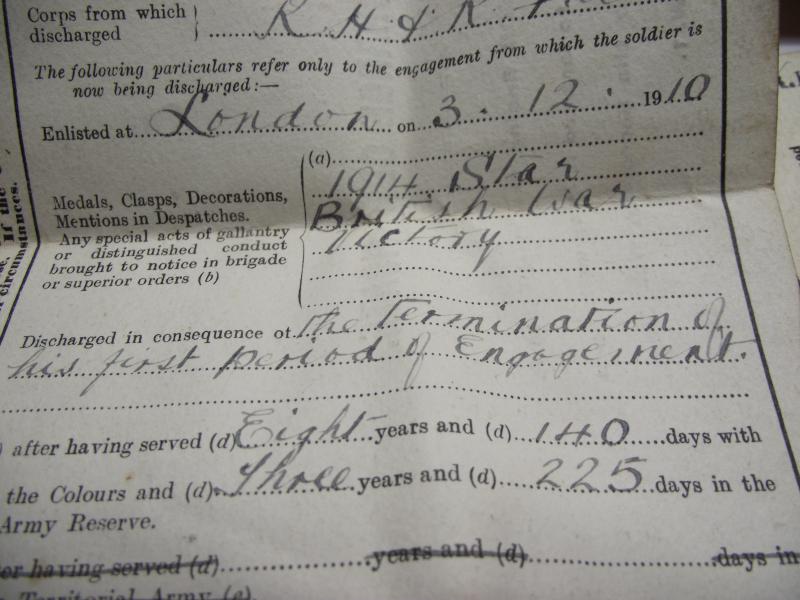 Corps from which
discharged } R H & R
The following particulars refer only to the engagement from which the soldier is
now being discharged:—
Enlisted at London on 3. 12. 1910
(a)
Medals, Clasps, Decorations, 1914 Star
Mentions in Despatches. British War
Any special acts of gallantry Victory
or distinguished conduct
brought to notice in brigade
or superior orders (b)
Discharged in consequence of the termination of
his first period of Engagement.
after having served (d) Eight years and (d) 140 days with
the Colours and (d) Three years and (d) 225 days in the
Army Reserve.
having served (d) years and (d) days in
Territorial Army (e)
If the
circumstances.